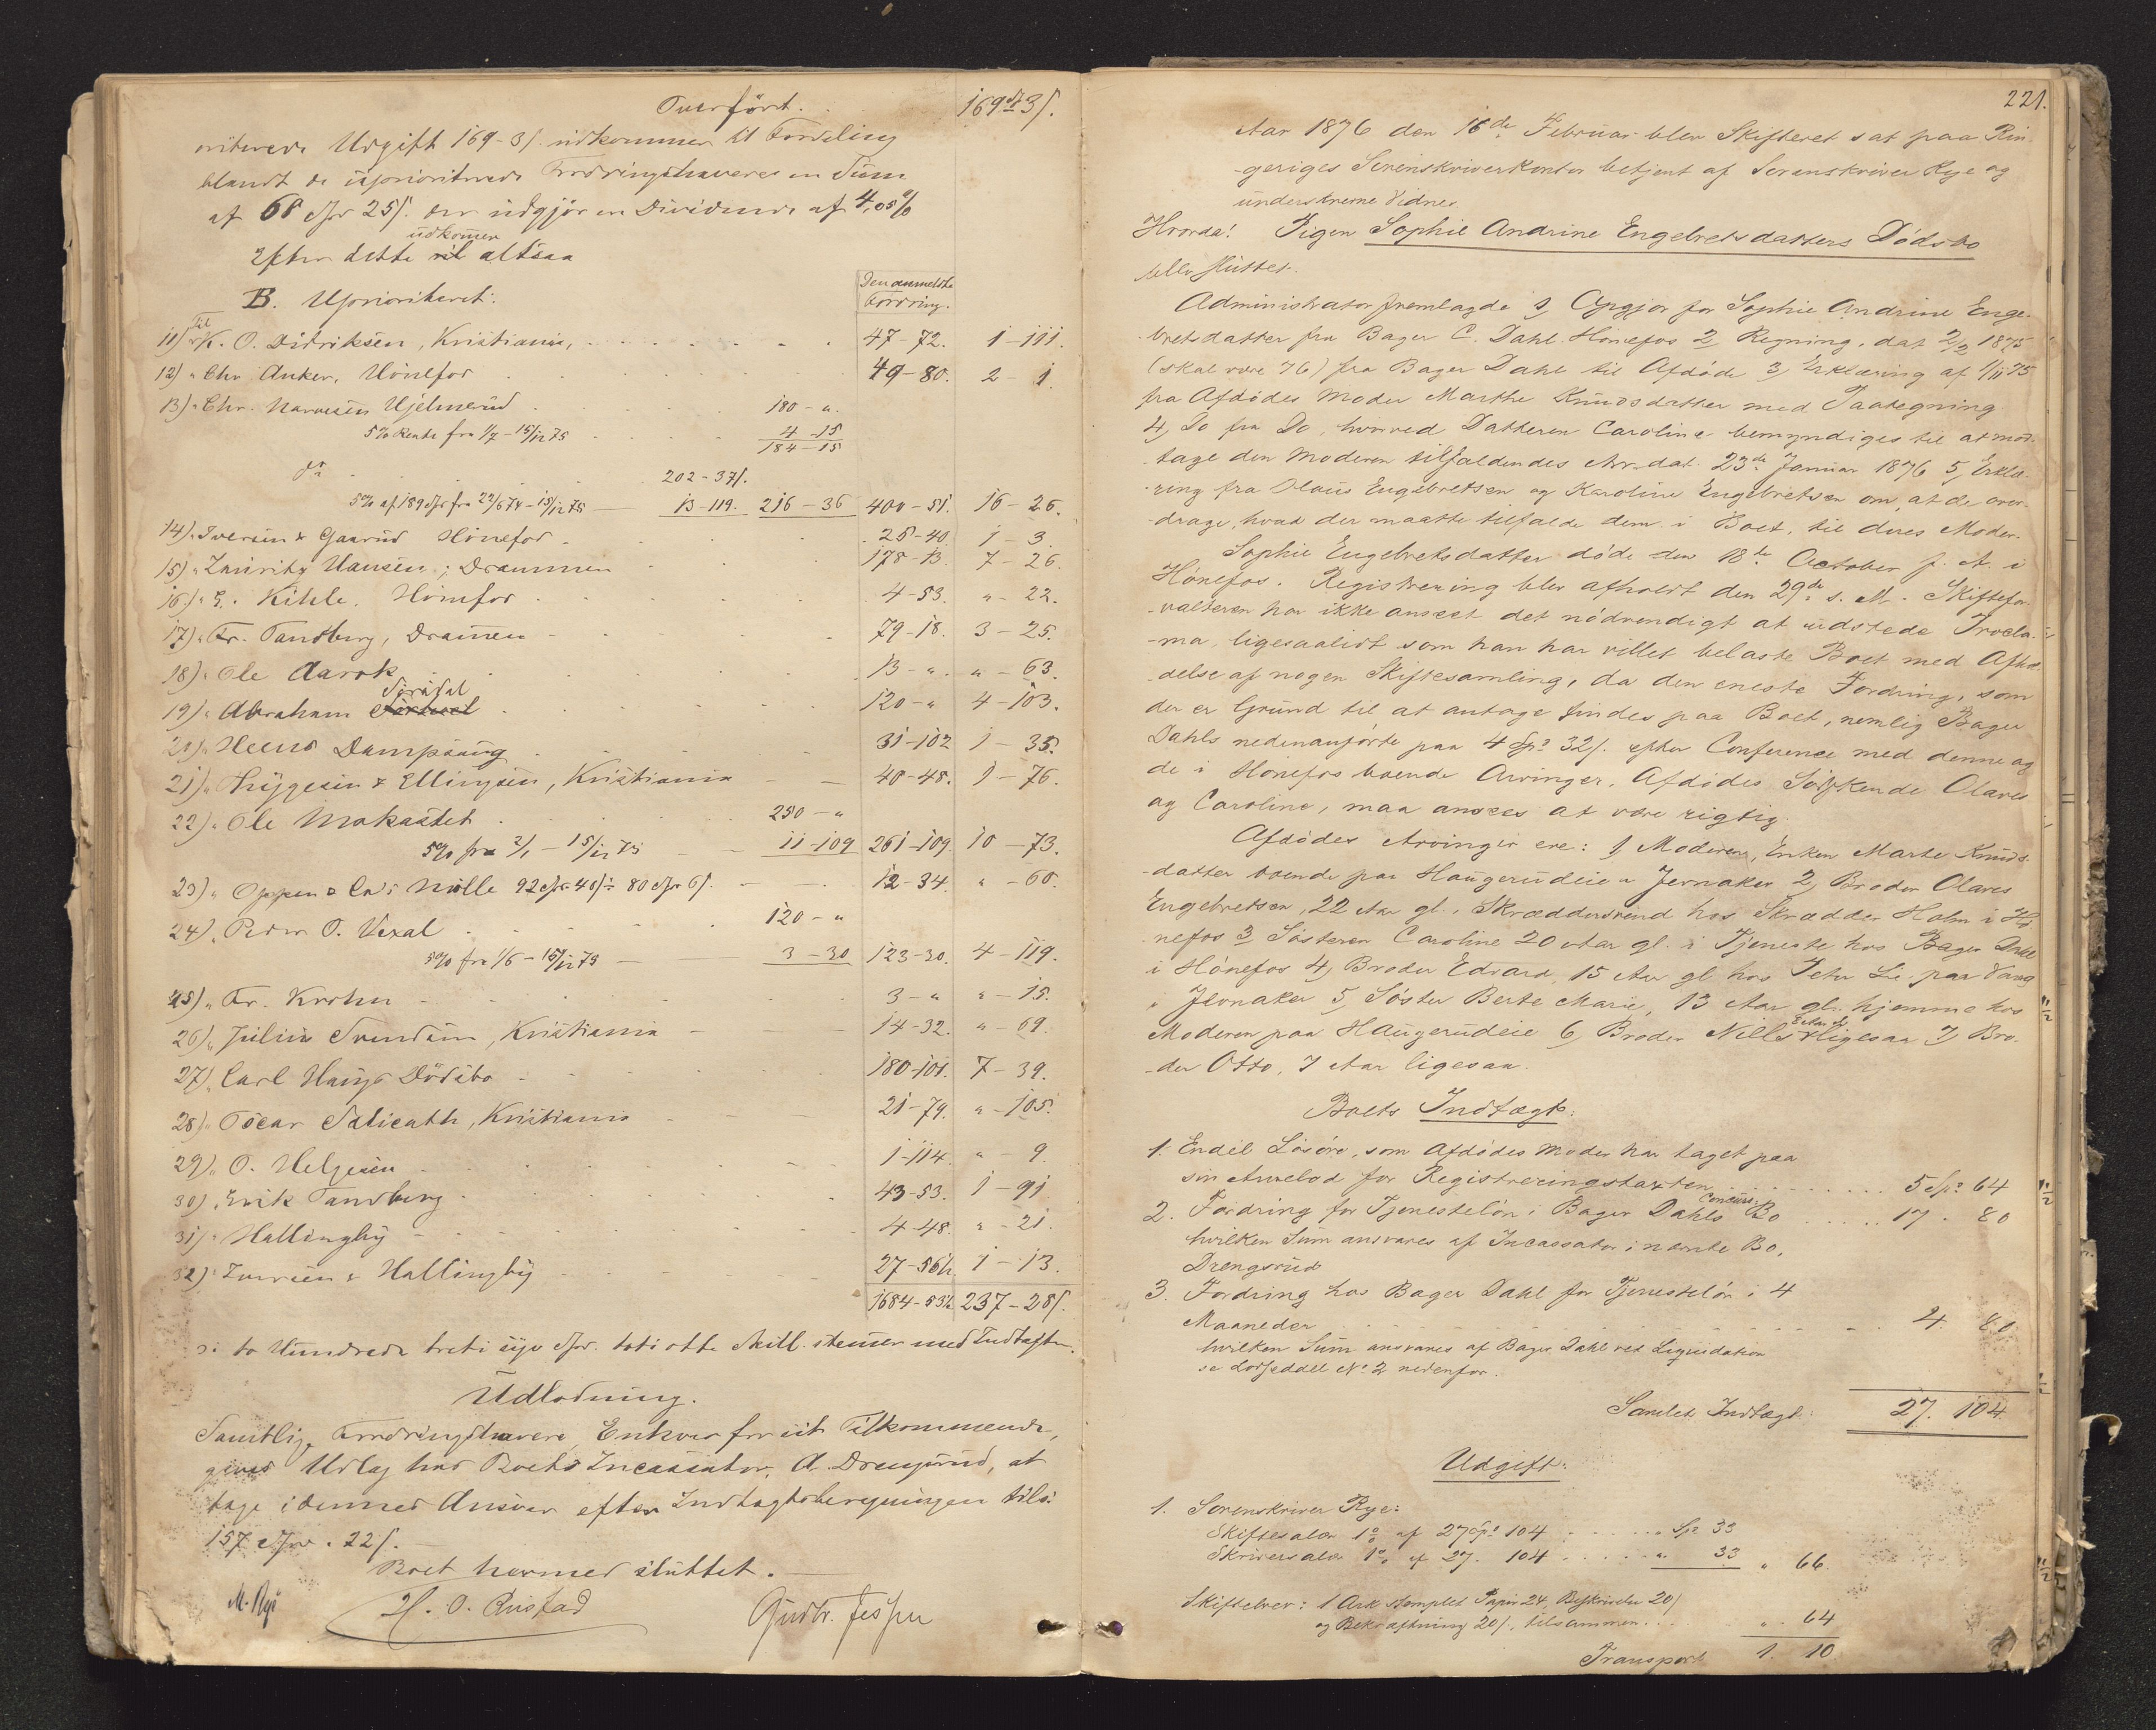 Overført. . 169 Spd 3 s.
oriterede Udgift 169-3 s. udkommer til Fordeling
blandt de uprioriterede Fordringshavere en Sum
af 68 Spd 25 s. der udgjør en Dividende af 4,05%
Efter dette vil udkommer altsaa
B. Uprioriteret: Den anmeldte Fordring.
11) Til K. O. Didriksen, Kristiania, 47-72. 1-111.
12) " Chr Anker, Hønefos 49-80. 2-1.
13) " Chr. Hjelmerud 180-"
5% Rente fra 1/7-15/12 75 4-15
184-15
do 202-37 s.
5% af 189 Spd fra 22/6 74-15/12 75 13-119. 216-36 400-51. 16-26.
14) " Iversen & Gaarud Hønefos 25-40. 1-3.
15) " Hansen, Drammen 178-13. 7-26.
16) " E. Kihle. Hønefos 4-53. "-22.
17) " Fr. Tandberg, Dramen 79-18. 3-25.
18) " Ole Aarok 13-". "-63.
19) " Abraham Sørdal 120-" 4-103.
20) " Dampsaug 31-102 1-35.
21) " Thygesen & Ellingsen, Kristiania 40-48. 1-76.
22) " Ole Mokastet 250-"
5% fra 2/1-15/12 75 11-109 261-109. 10-73.
23) " Oppen & Co's Mølle 92 Spd 40 s ÷ 80 Spd 6 s. 12-34. "-60.
24) " Peder O. Vexal 120-"
5% fra 1/6-15/12 75 3-30 123-30. 4-119.
25) " Fr. Krohn 3-" "-15.
26) " Julius Svendsen, Kristiania 14-32. "-69.
27) " Carl Haugs Dødsbo 180-101. 7-39.
28) " Oscar Salicath, Kristiania 21-79. "-105.
29) " O. Helgesen 1-114. "-9.
30) " Erik Tandberg 43-53. 1-91
31) " Hallingby 4-48. "-21.
32) " Iversen & Hallingby 27-56½. 1-13.
1684-53½ 237-28 s.
ɔ: to Hundrede treti syv Spd. toti otte Skill. stemmer med Indtægten.
Udlodning.
Samtlige Fordringshavere, Enhver for sit Tilkommende,
gives Udlæg hos Boets Incassator, A. Drengsrud, at
tage i dennes Ansvar efter Indtægtsberegningen tils:
157 Spd. 22 s.
Boet hermed sluttet.
M. Rye H. O. Gudbr. Jespersen
221.
Aar 1876 den 16de Februar blev Skifteret sat paa Rin-
geriges Sorenskriverkontor betjent af Sorenskriver Rye og
underskrevne Vidner.
Hvorda! Pigen Sophie Andrine Engebretsdatters Dødsbo
blev sluttet.
Administrator fremlagde 1, Opgjør for Sophie Andrine Enge-
bretsdatter fra Bager C. Dahl Hønefos 2, Regning, dat 2/2 1875
(skal være 76) fra Bager Dahl til Afdøde 3, Erklæring af 1/11 75
fra Afdødes Moder Marthe Knudsdatter med Paategning
4, Do fra Do, hvorved Datteren Caroline bemyndiges til at mod-
tage den Moderen tilfaldendes Arv dat. 23de Januar 1876 5, Erklæ-
ring fra Olaus Engebretsen og Karoline Engebretsen om, at de over-
drage, hvad der maatte tilfalde dem i Boet, til deres Moder.
Sophie Engebretsdatter døde den 18de October f. A. i
Hønefos. Registrering blev afholdt den 29de s. M. Skiftefor-
valteren har ikke anseet det nødvendigt at udstede Procla-
ma, ligesaalidt som han har villet belaste Boet med Afhol-
delse af nogen Skiftesamling, da den eneste Fordring, som
der er Grund til at antage findes paa Boet, nemlig Bager
Dahls nedenanførte paa 4 Spd 32 s. efter Conference med denne og
de i Hønefos boende Arvinger, Afdødes Søskende Olaves
og Caroline, maa ansees at være rigtig.
Afdødes Arvinger ere: 1, Moderen, Enken Marte Knuds-
datter boende paa Haugerudeie i Jevnaker 2, Broder Olaves
Engebretsen, 22 Aar gl., Skræddersvend hos Skrædder Holm i Hø-
nefos 3, Søsteren Caroline 20 Aar gl. i Tjeneste hos Bager Dahl
i Hønefos 4, Broder Edvard, 15 Aar gl. hos Peter Lie paa Vang
i Jevnaker 5, Søster Berte Marie, 13 Aar gl. hjemme hos
Moderen paa Haugerudeie 6, Broder Nils ligesaa 7, Bro-
der Otto, 7 Aar ligesaa.
Boets Indtægt:
1. Endel Løsøre, som Afdødes Moder har taget paa
sin Arvelod for Registreringstaxten 5 Spd 64
2. Fordring for Tjenesteløn i Bager Dahls Concurs-Bo 17. 80
hvilken Sum ansvares af Incassator i nævnte Bo,
Drengsrud
3. Fordring hos Bager Dahl for Tjenesteløn i 4
Maaneder 4. 80
hvilken Sum ansvares af Bager Dahl ved Liqvidation
se Lodseddel No 2 nedenfor.
Samlet Indtægt: 27. 104.
Udgift:
1. Sorenskriver Rye:
Skiftesalær 1% af 27 Spd 104 " Spd 33
Skriversalær 1% af 27. 104 " 33 " 66.
Skiftebrev: 1 Ark stemplet Papir 24, Beskrivelse 20 s
og Bekræftning 20 s., tilsammen ". 64
Transport 1. 10.